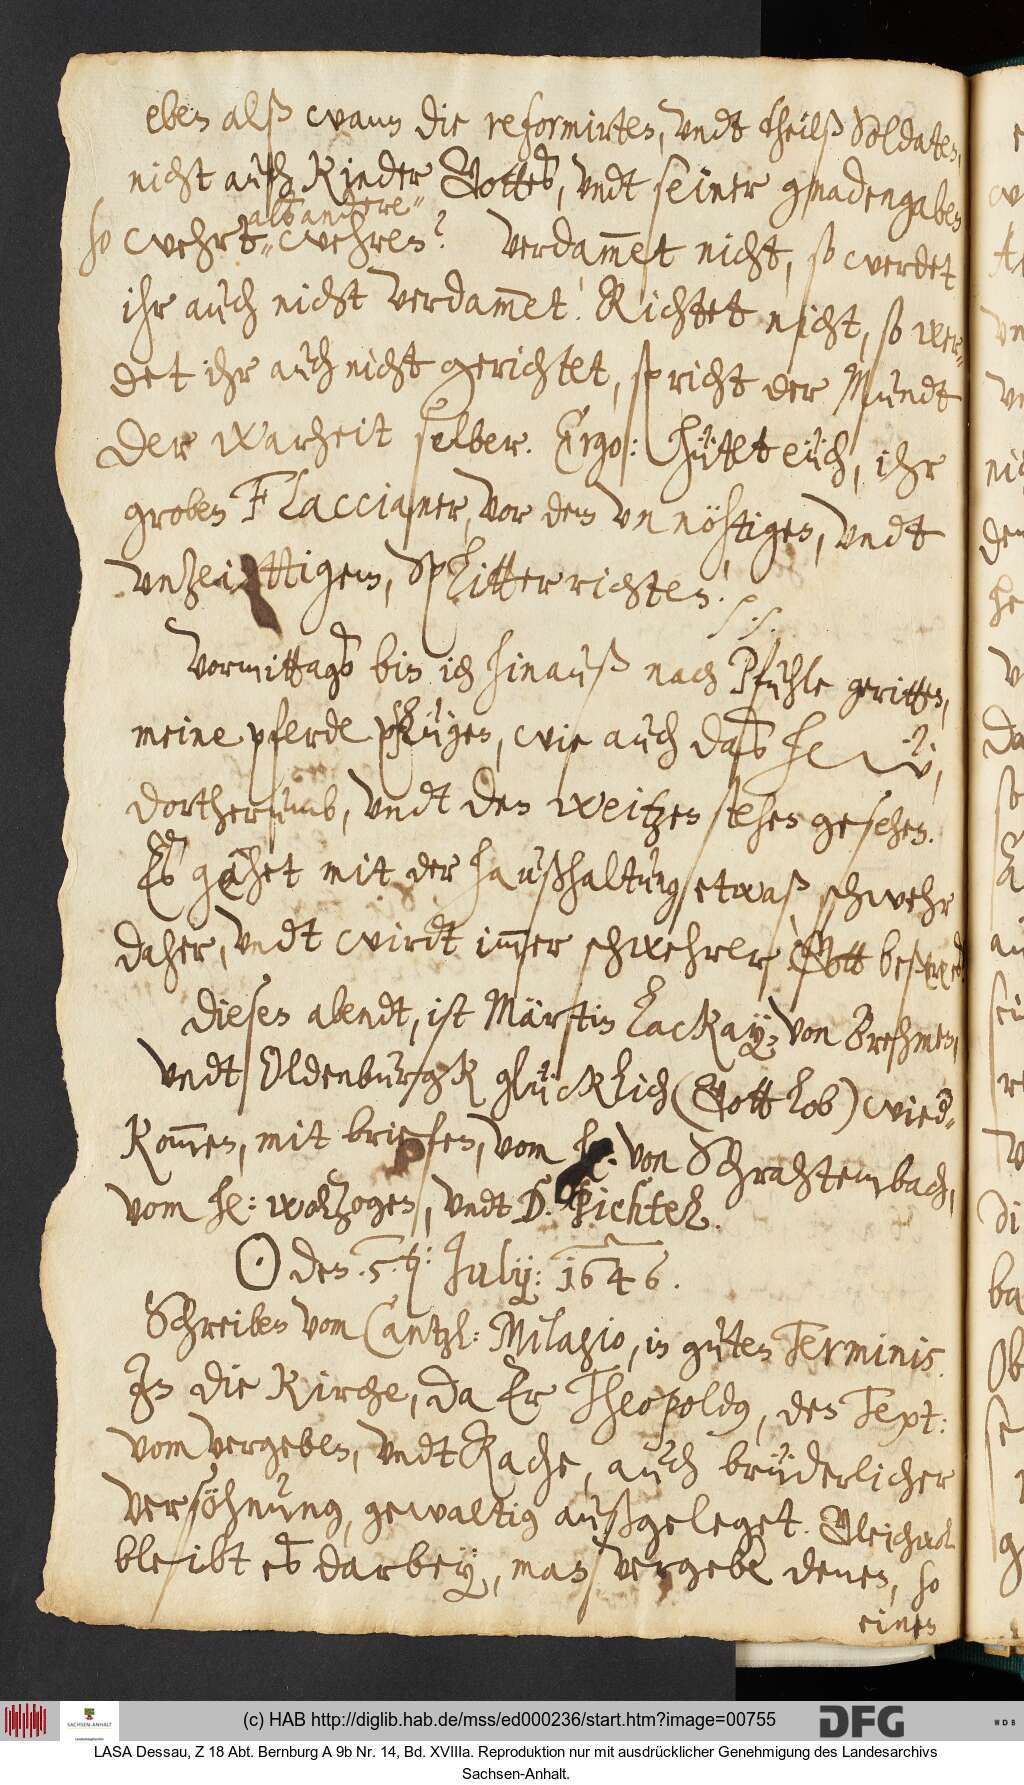 eben alß wann die reformirten, undt theilß Soldaten,
nicht auch Kinder Gottes, undt seiner gnadengaben
alß andere
so wehrt wehren? Verdammet nicht, so werdet
ihr auch nicht verdammet! Richtet nicht, so wer=
det ihr auch nicht gerichtet, spricht der Mundt
der warheit selber. Ergo: hüttet eüch, ihr
groben Flaccianer, vor dem unnöhtigen, undt
unzeittigem, Splitterrichten! /
Vormittags bin ich hinauß nach Pfuhle geritten,
meine pferde pflügen, wie auch das heẅ,
dortherumb, undt den weitzen stehen gesehen.
Es gehet mit der haußhaltung etwaß schwehr
daher, undt wirdt immer schwehrer, Gott beßere es
Diesen abendt, ist Märtin Lackaÿ, von Brehmen,
undt Oldenburgk glücklich (Gott lob) wied=
kommen, mit briefen, vom H. von Schrahtembach,
vom He: wolzogen, undt D. Pichtel.
☉ den 5.ten: Julij: 1646.
Schreiben vom Cantzl: Milagio, in guten Terminis.
In die Kirche, da Er Theopoldus, den Text:
vom vergeben, undt Rache, auch brüderlicher
versöhnung, gewaltig außgeleget. Gleichwol
bleibt es darbeÿ, man vergebe denen, so
einen
(c) HAB http://diglib.hab.de/mss/ed000236/start.htm?image=00755
SACHSEN-ANHALT
DFG
WDB
LASA Dessau, Z 18 Abt. Bernburg A 9b Nr. 14, Bd. XVIIIa. Reproduktion nur mit ausdrücklicher Genehmigung des Landesarchivs
Sachsen-Anhalt.